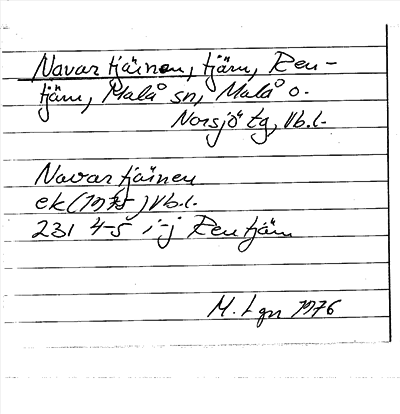 Navartjäinen, tjärn, Ren-
tjärn, Malå sn, Malå o.
Norsjö tg, Vb.l.
Navartjäinen
ek (1975) Vb.l.
231 4-5 i-j Rentjärn
M. Lgn 1976